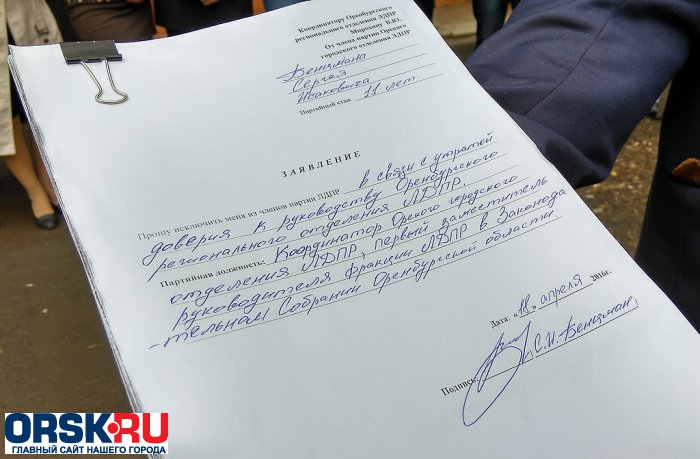 Координатору Оренбургского
регионального отделения ЛДПР
Мирохину В.Ю.
От члена партии Орского
городского отделения ЛДПР
Бенцмана
Сергея
Исаковича
Партийный стаж 11 лет
ЗАЯВЛЕНИЕ
Прошу исключить меня из членов партии ЛДПР в связи с утратой
доверия к руководству Оренбургского
регионального отделения ЛДПР.
Партийная должность: Координатор Орского городского
отделения ЛДПР, первый заместитель
руководителя фракции ЛДПР в Законода
-тельном Собрании Оренбургской области.
Дата: «18» апреля 2016г.
Подпись: С.И. Бенцман.
ORSK.RU
ГЛАВНЫЙ САЙТ НАШЕГО ГОРОДА